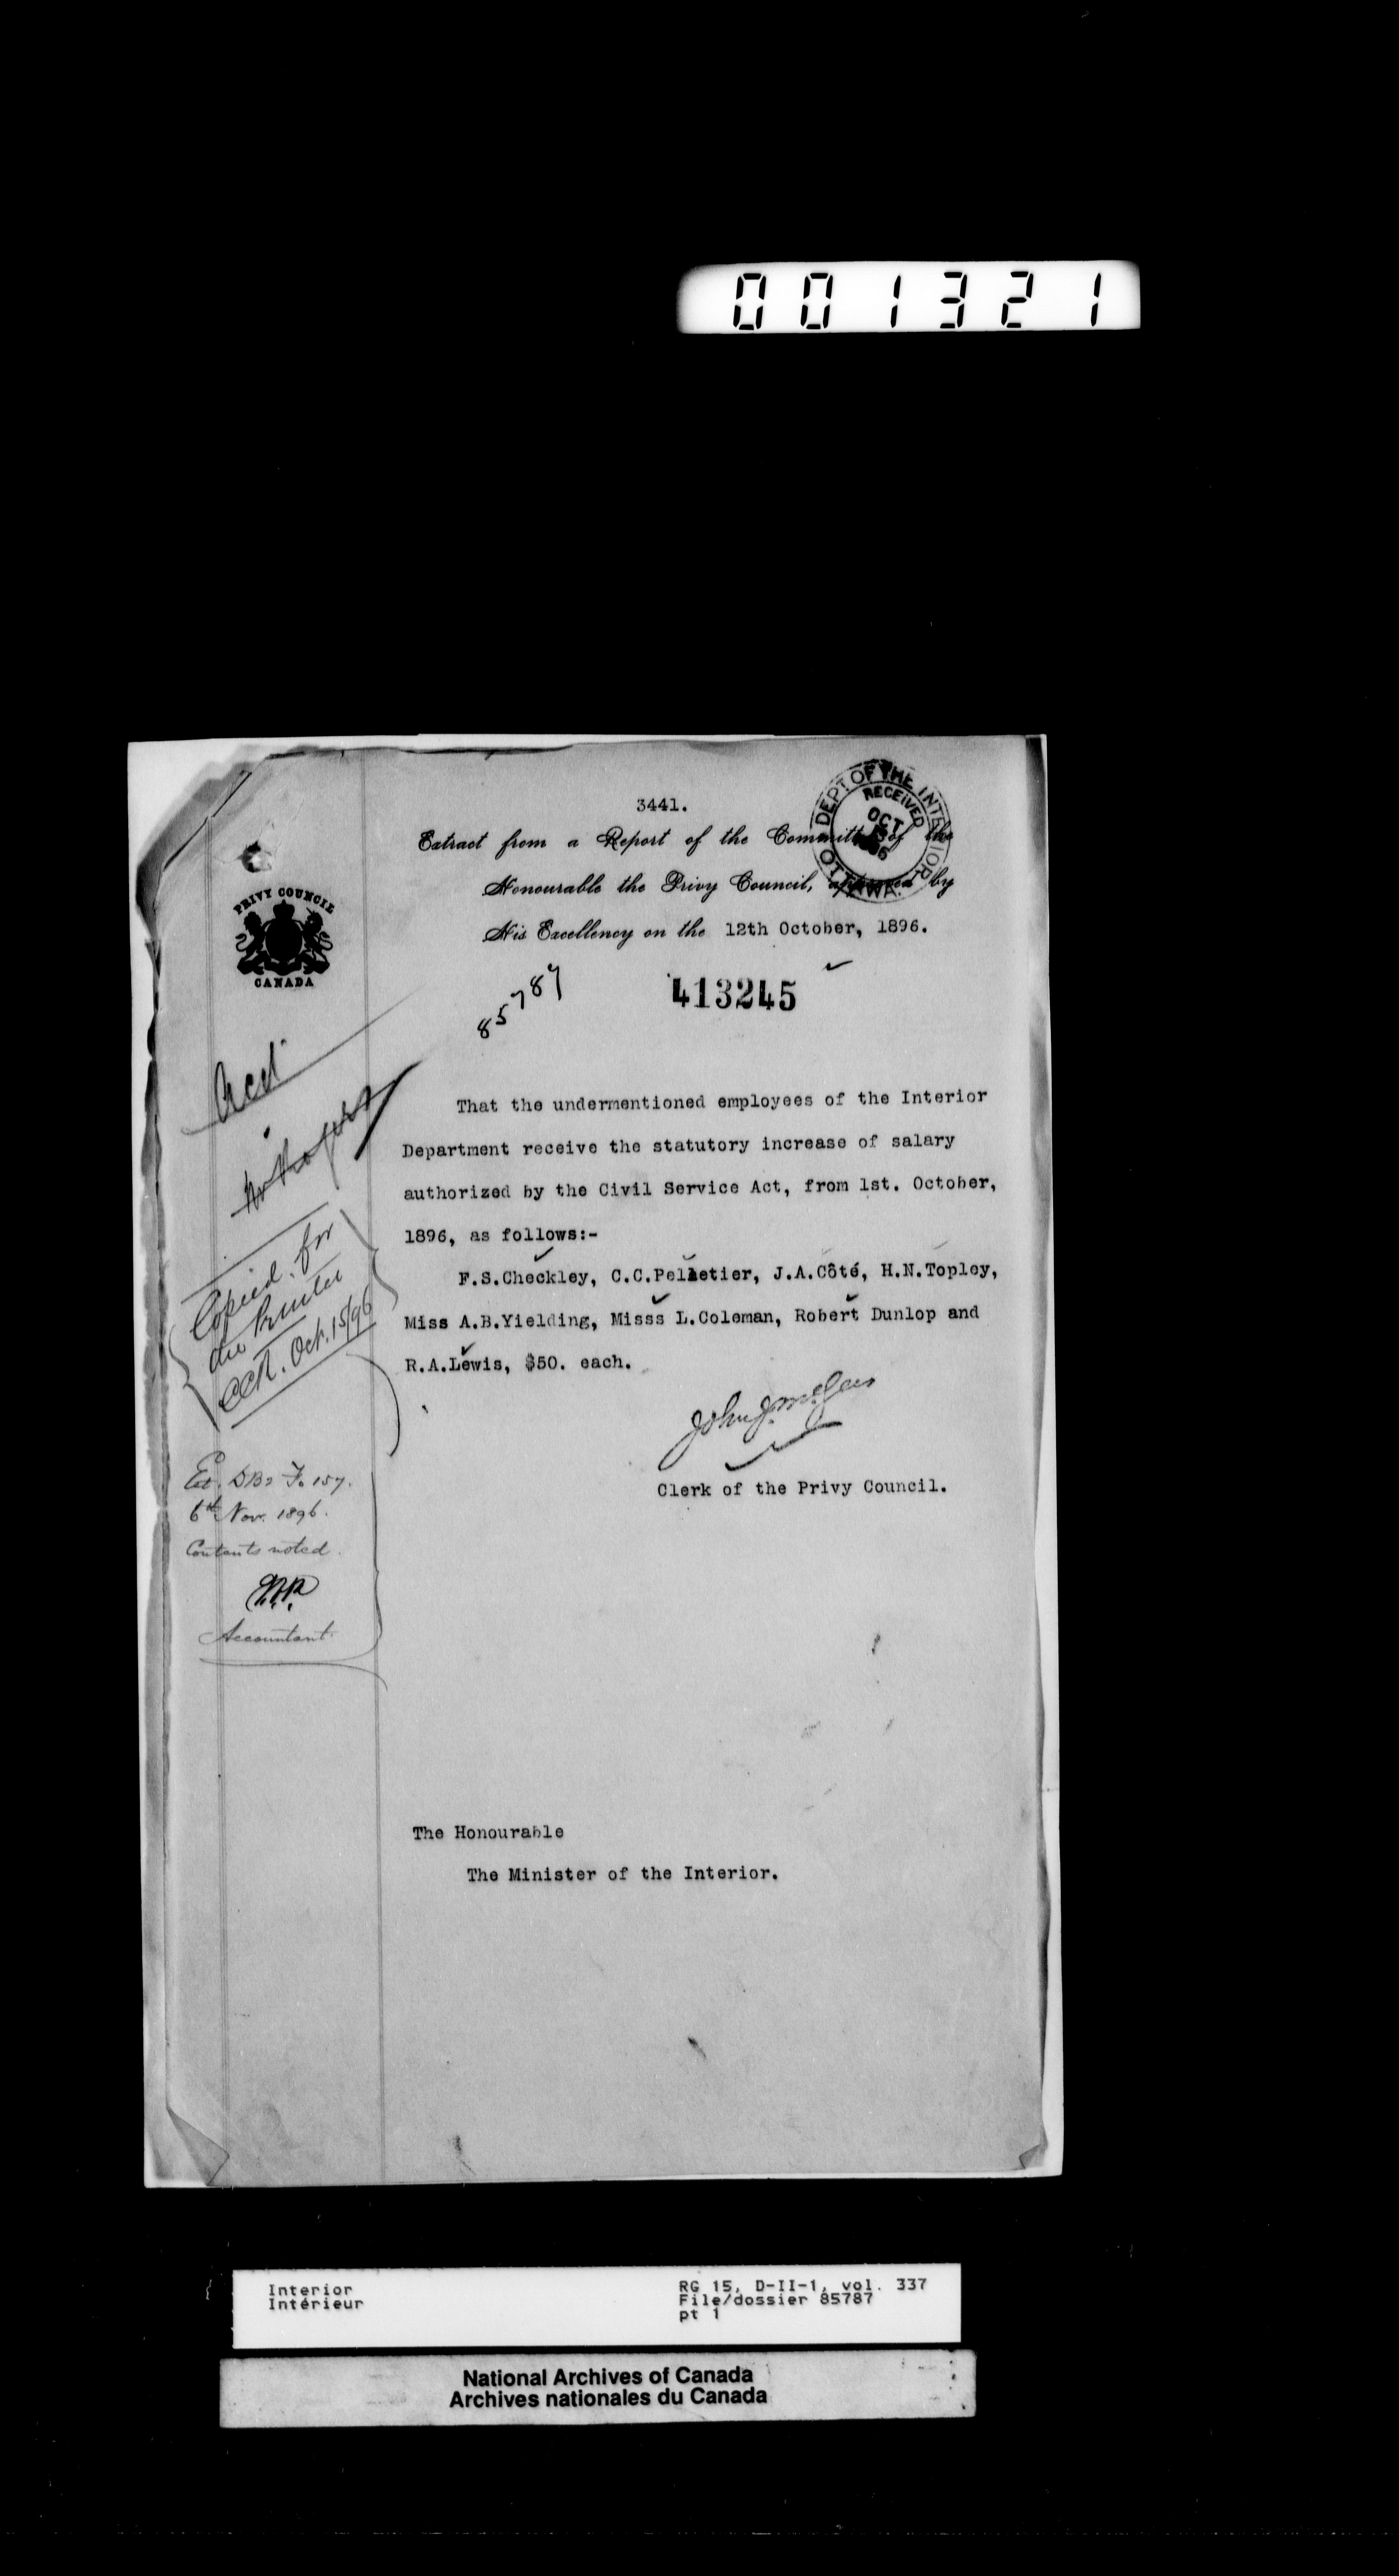 001321
3441.
DEPT OF THE INTERIOR
RECEIVED
OCT
OTTAWA.
Extract from a Report of the Committee of the
Honourable the Privy Council, approved by
His Excellency on the 12th October, 1896.
PRIVY COUNCIL
CANADA
85787
413245
That the undermentioned employees of the Interior
Department receive the statutory increase of salary
authorized by the Civil Service Act, from 1st. October,
1896, as follows:-
F.S.Checkley, C.C.Pelletier, J.A.Côté, H.N.Topley,
Miss A.B.Yielding, Misss L.Coleman, Robert Dunlop and
R.A.Lewis, $50. each.
Copied for
the Printer
Oct. 15/96
John J. McGee
Clerk of the Privy Council.
6th Nov. 1896.
Contents noted.
Accountant
The Honourable
The Minister of the Interior.
Interior
Intérieur
RG 15, D-II-1, vol. 337
File/dossier 85787
pt 1
National Archives of Canada
Archives nationales du Canada